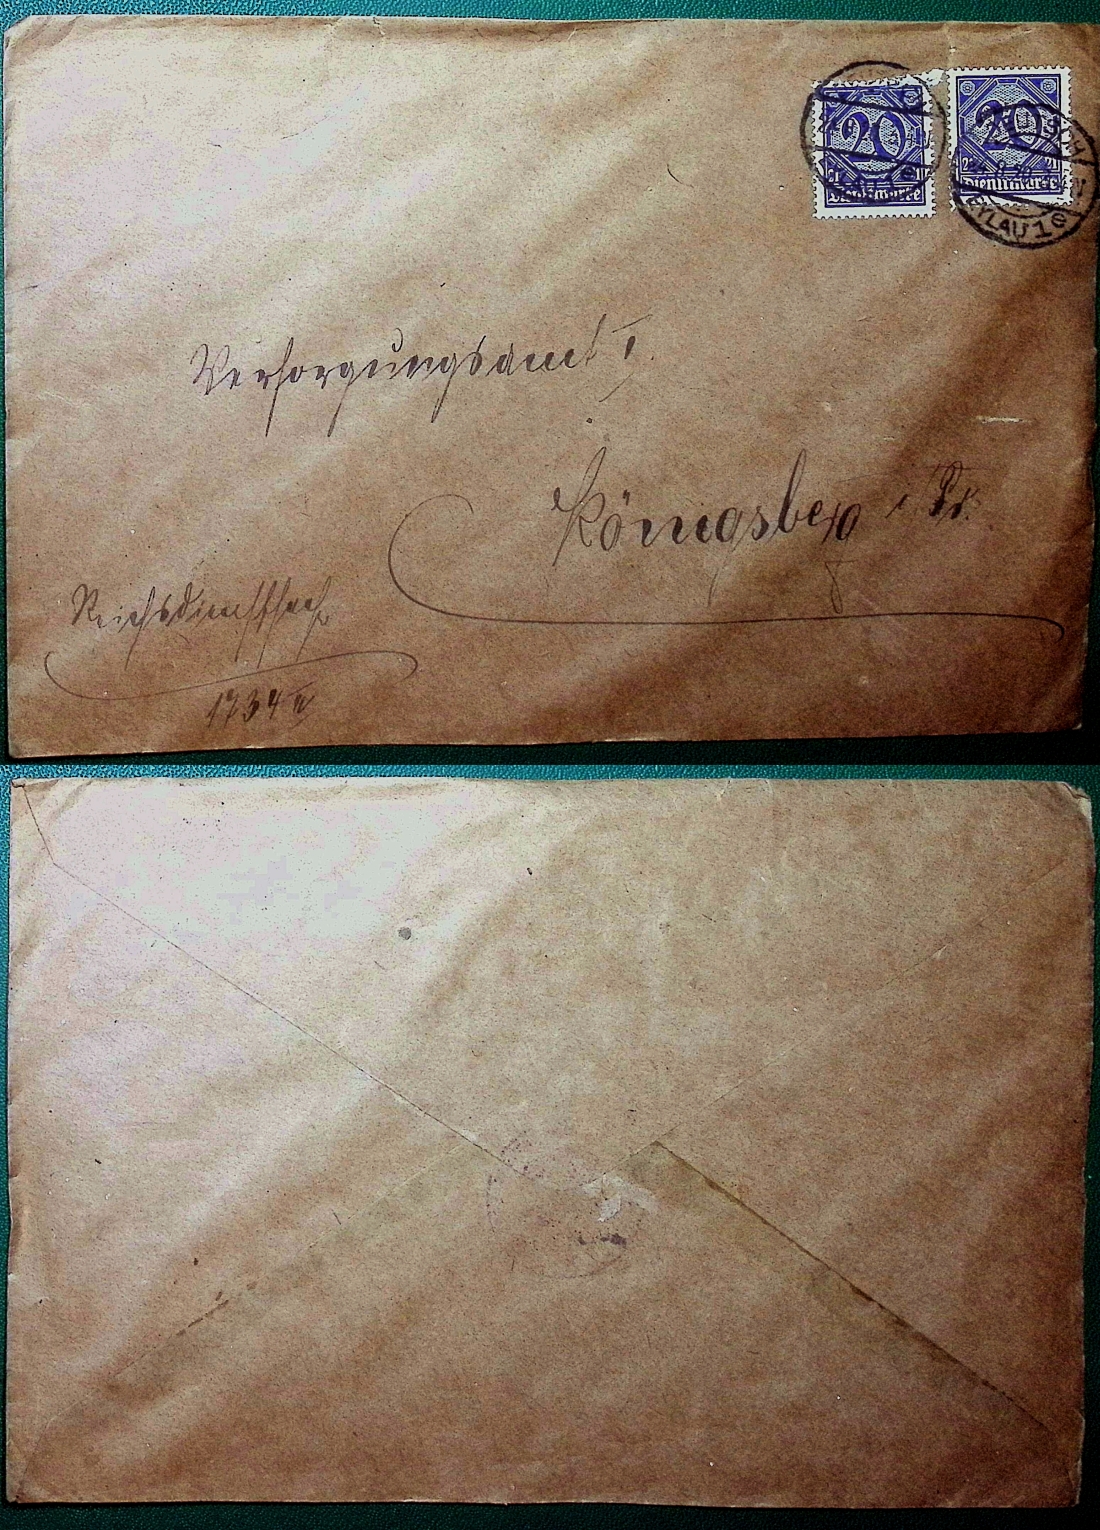 20
21
Dienstmarke
20
21 21
Dienstmarke
EYLAU 1
Versorgungsamt I.
Königsberg i/Pr.
Reichsdienstsache
1734 IV